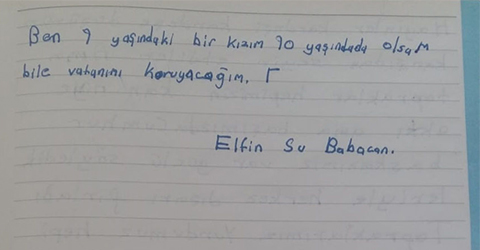 Ben 9 yaşındaki bir kızım 90 yaşındada olsam
bile vatanımı koruyacağım.
Elfin Su Babacan.